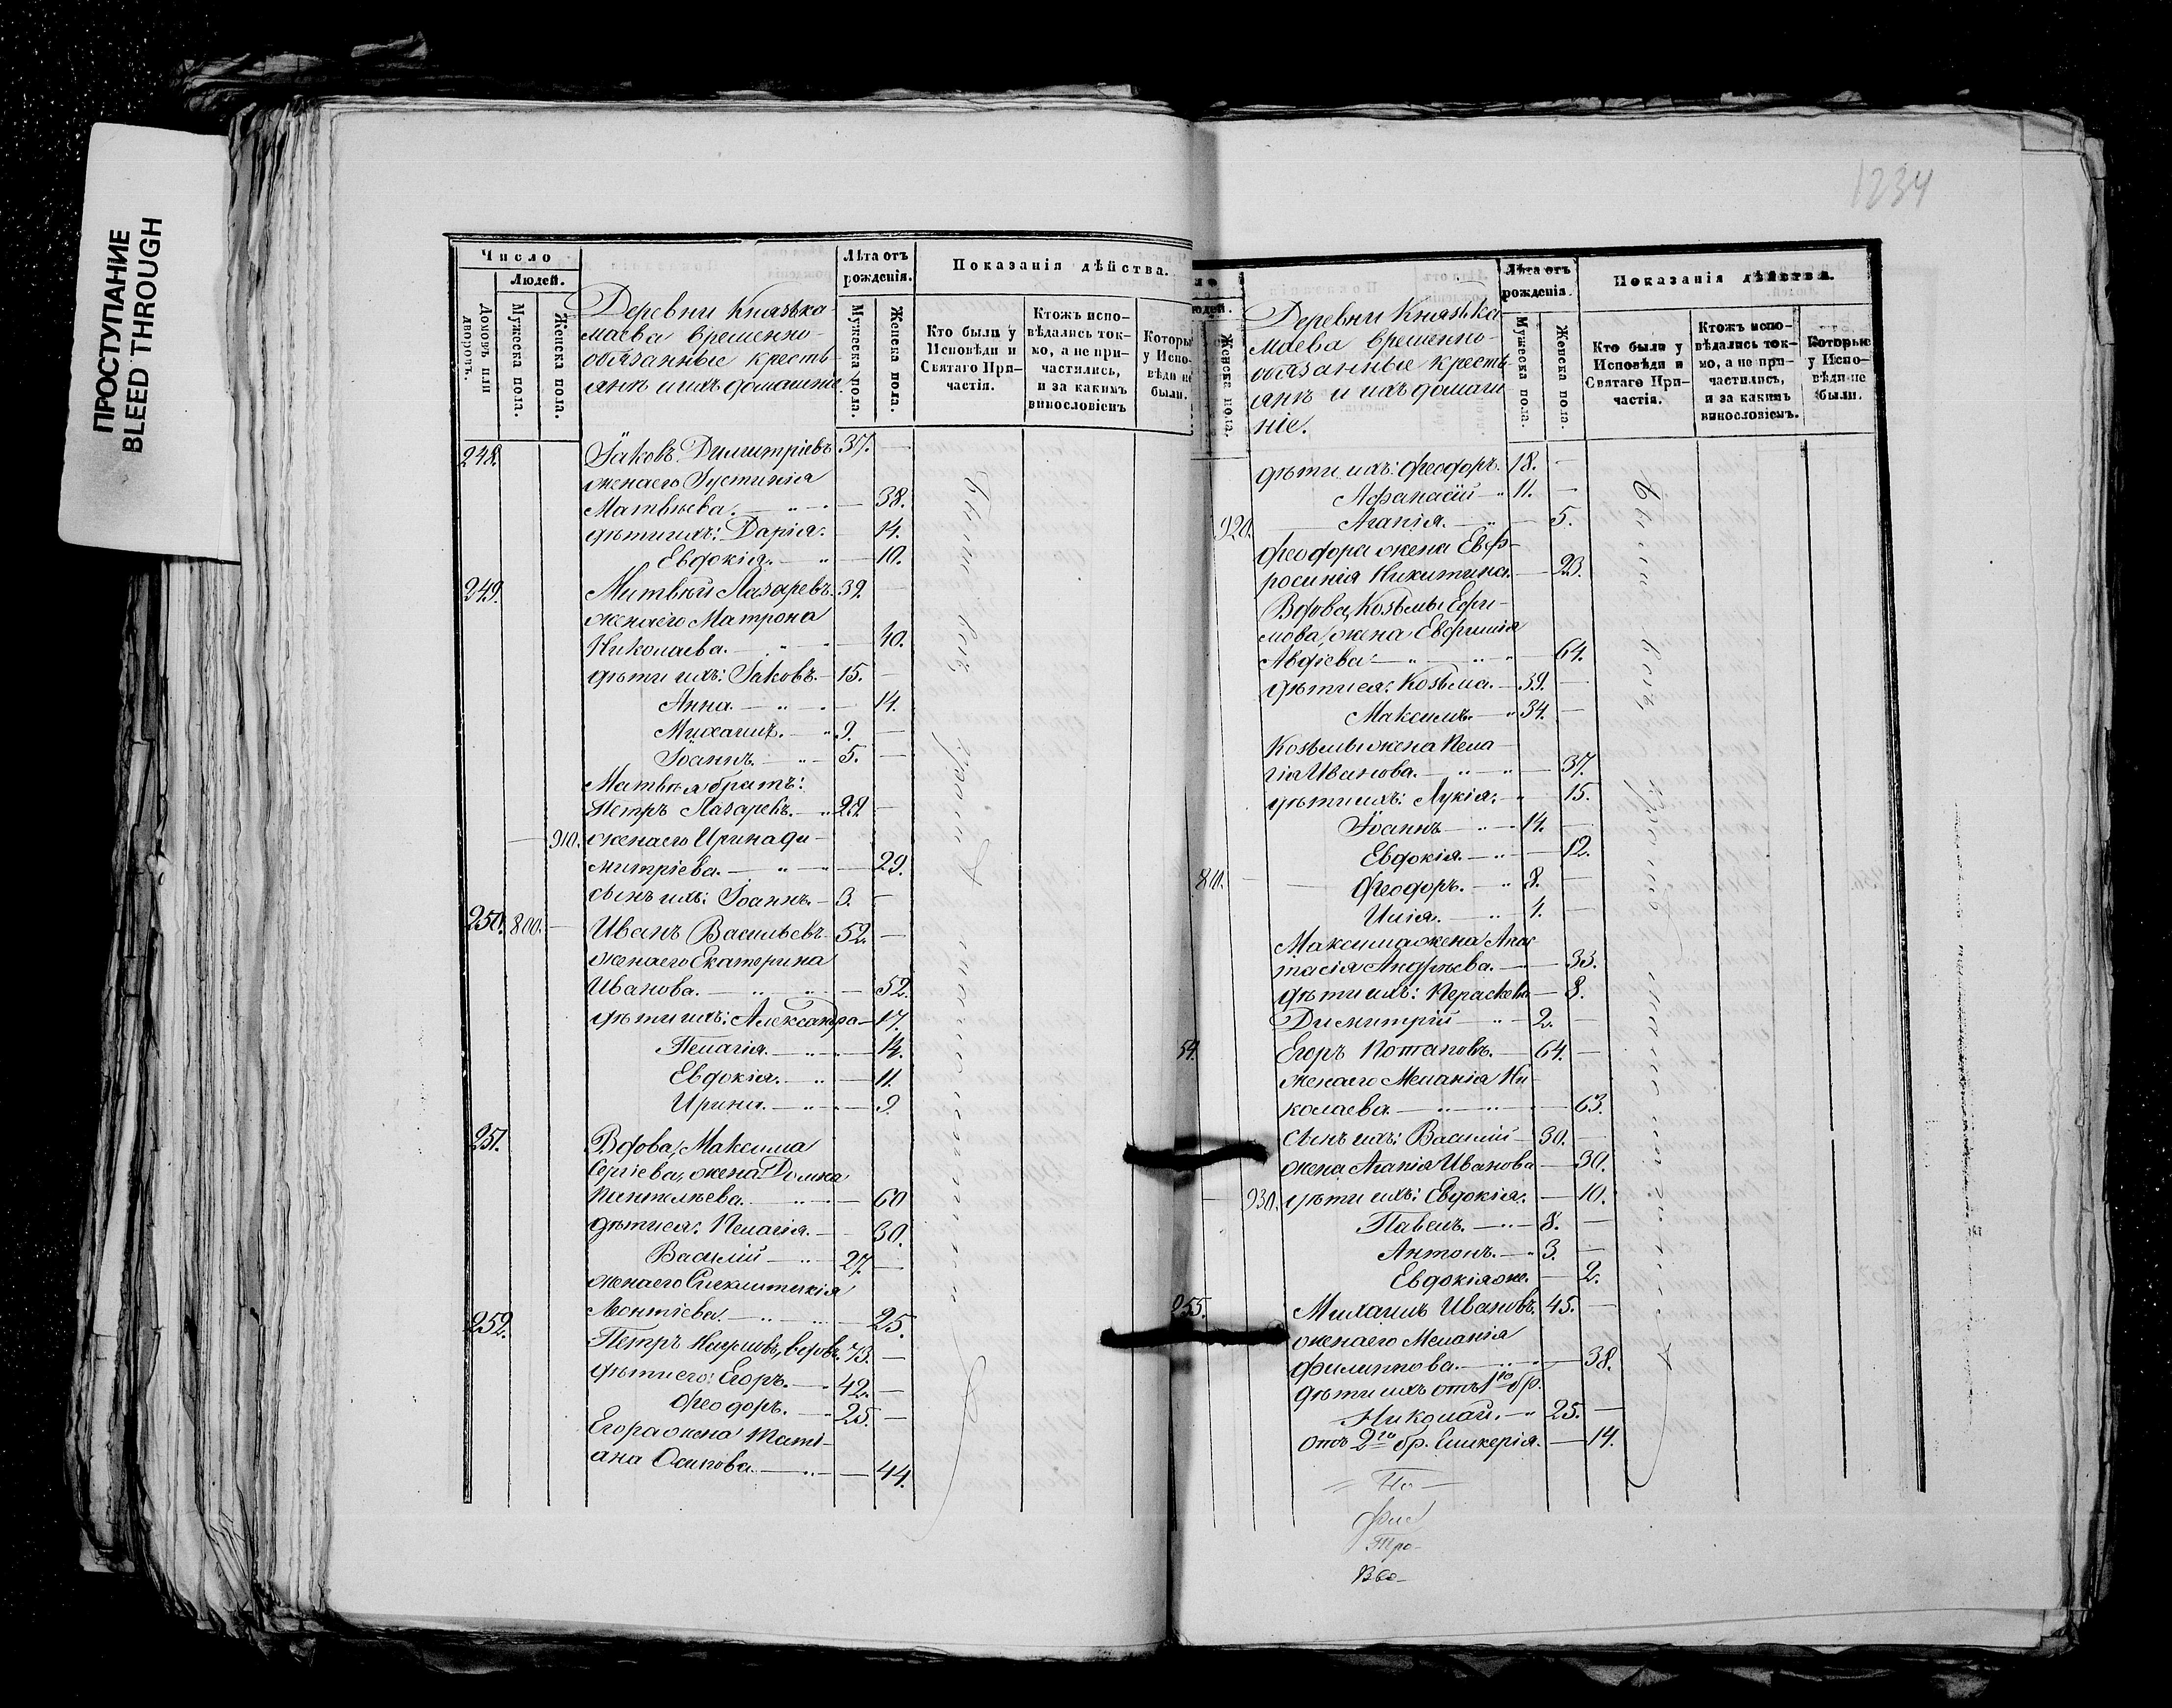 ПРОСТУПАНИЕ
BLEED THROUGH
1234
Число
Людей.
Домовъ или дворовъ.
Мужеска пола.
Женска пола.
Деревни Княжка-
маева временно-
обязанные кресть-
янъ и ихъ домашніе
Лѣта отъ рожденія.
Мужеска пола.
Женска пола.
Показанія дѣйства.
Кто были у Исповѣди и Святаго Причастія.
Ктожъ исповѣдались токмо, а не причастились, и за какимъ винословіемъ
Которые у Исповѣди не были.
248. Іаковъ Димитріевъ 37. —
жена его Іустинія
Матвѣева. — 38.
дѣти ихъ: Дарія. 14.
Евдокія. — 10.
249. Матвѣй Лазаревъ 39. —
жена его Матрона
Николаева. — 40.
дѣти ихъ: Іаковъ. 15. —
Анна. — 14.
Михаилъ. — 9. —
Іоаннъ. — 5. —
Матвѣя братъ:
Петръ Лазаревъ. 28. —
— 910. жена его Ирина Ди-
митріева. — 29.
сынъ ихъ: Іоаннъ. 3. —
250. 800. — Иванъ Васильевъ 52. —
жена его Екатерина
Иванова. — 52.
дѣти ихъ: Александра — 17.
Пелагія. — 14.
Евдокія. — 11.
Ирина. — 9.
251. Вдова, Максима
Сергіева, жена Домна
Пантелѣева. — 60
дѣти ея: Пелагія. — 30.
Василій — 27. —
жена его Синклитикія
Леонтіева. — 25.
252. Петръ Наумовъ, вдовъ. 73. —
дѣти его: Егоръ. — 42. —
Феодоръ. — 25. —
Егора жена Тати-
ана Осипова. — 44.
Были
вси
у исповѣди
Людей.
Женска пола.
Деревни Княжка-
маева временно-
обязанные кресть-
янъ и ихъ домаш-
ніе.
Лѣта отъ рожденія.
Мужеска пола.
Женска пола.
Показанія дѣйства.
Кто были у Исповѣди и Святаго Причастія.
Ктожъ исповѣдались токмо, а не причастились, и за какимъ винословіемъ.
Которые у Исповѣди не были.
дѣти ихъ: Феодоръ. 18. —
Афанасій — 11. —
920. Агапія. — 5.
Феодора жена Евф-
росинія Никитина. — 23.
Вдова, Козьмы Ефи-
мова, жена Евфимія
Авдіева — 64.
дѣти ея: Козьма. — 39. —
Максимъ. — 34. —
Козьмы жена Пела-
гія Иванова. — 37.
дѣти ихъ: Лукія. 15.
Іоаннъ — 14. —
Евдокія. — 12.
810. — Феодоръ. — 8. —
Илія. — 4. —
Максима жена Анас-
тасія Андрѣева. — 33.
дѣти ихъ: Пераскева — 8.
Димитрій — 2. —
54. Егоръ Потаповъ. — 64. —
жена его Меланія Ни-
колаева. — 63.
сынъ ихъ: Василій — 30. —
жена Агапія Иванова — 30.
— 930. дѣти ихъ: Евдокія. — 10.
Павелъ. — 8. —
Антонъ. — 3. —
Евдокія же. — 2.
255. Михаилъ Ивановъ. 45. —
жена его Меланія
Филиппова. — 38.
дѣти ихъ отъ 1го бр.
Николай. — 25. —
отъ 2го бр. Гликерія. — 14.
Были
вси